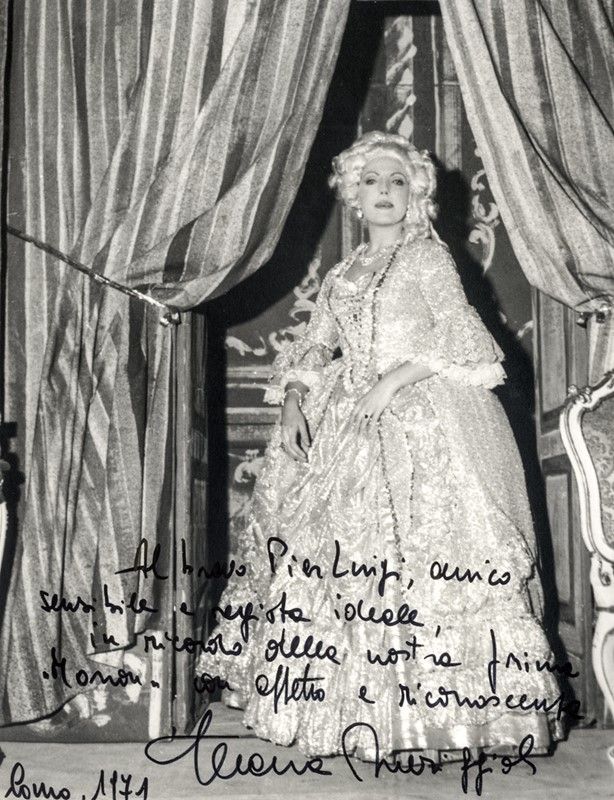 Al bravo Pier Luigi, amico
sensibile e regista ideale,
in ricordo della nostra prima
"Manon" con affetto e riconoscenza
Roma, 1971